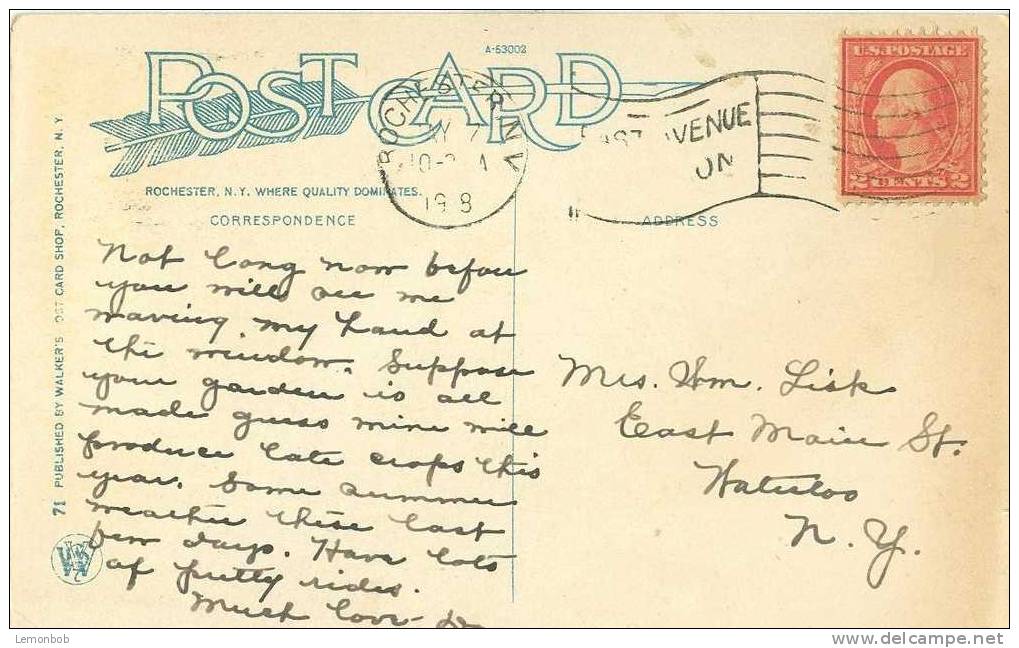 A-53002
POST CARD
U.S. POSTAGE
2 CENTS 2
ROCHESTER
10-
AVENUE
ROCHESTER, N.Y. WHERE QUALITY DOMINATES.
CORRESPONDENCE
ADDRESS
71 PUBLISHED BY WALKER'S POST CARD SHOP, ROCHESTER, N.Y.
Not long now before
you will see me
waving my hand at
the window. Suppose
your garden is all
made guess mine will
produce late crops this
year. Some summer
weather these last
few days. Have lots
of pretty rides.
Much love-
Mrs. Wm. Lisk
East Main St.
Waterloo
N.Y.
Lemonbob
delcampe.net